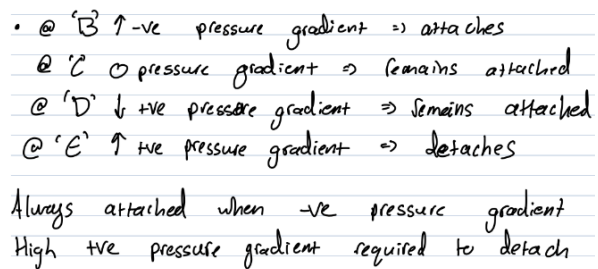 • @ 'B' ↑ -ve pressure gradient => attaches
@ 'C' O pressure gradient => remains attached
@ 'D' ↓ +ve pressure gradient => remains attached
@ 'E' ↑ +ve pressure gradient => detaches
Always attached when -ve pressure gradient
High +ve pressure gradient required to detach